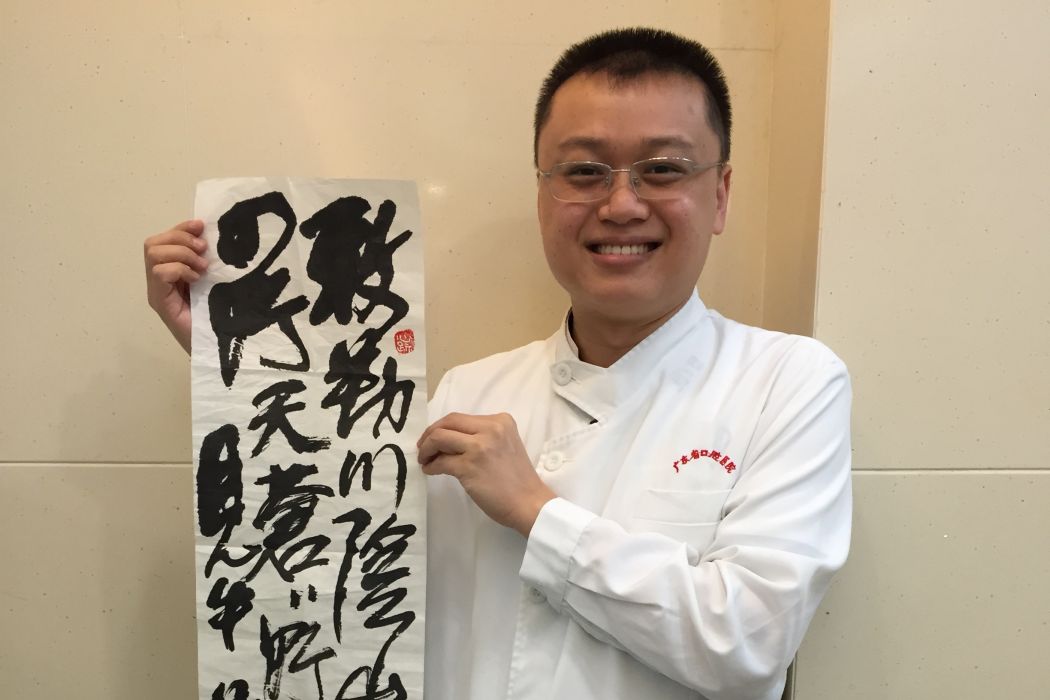 敕勒川陰山
四野天蒼〻野
見牛
广东省口腔医院